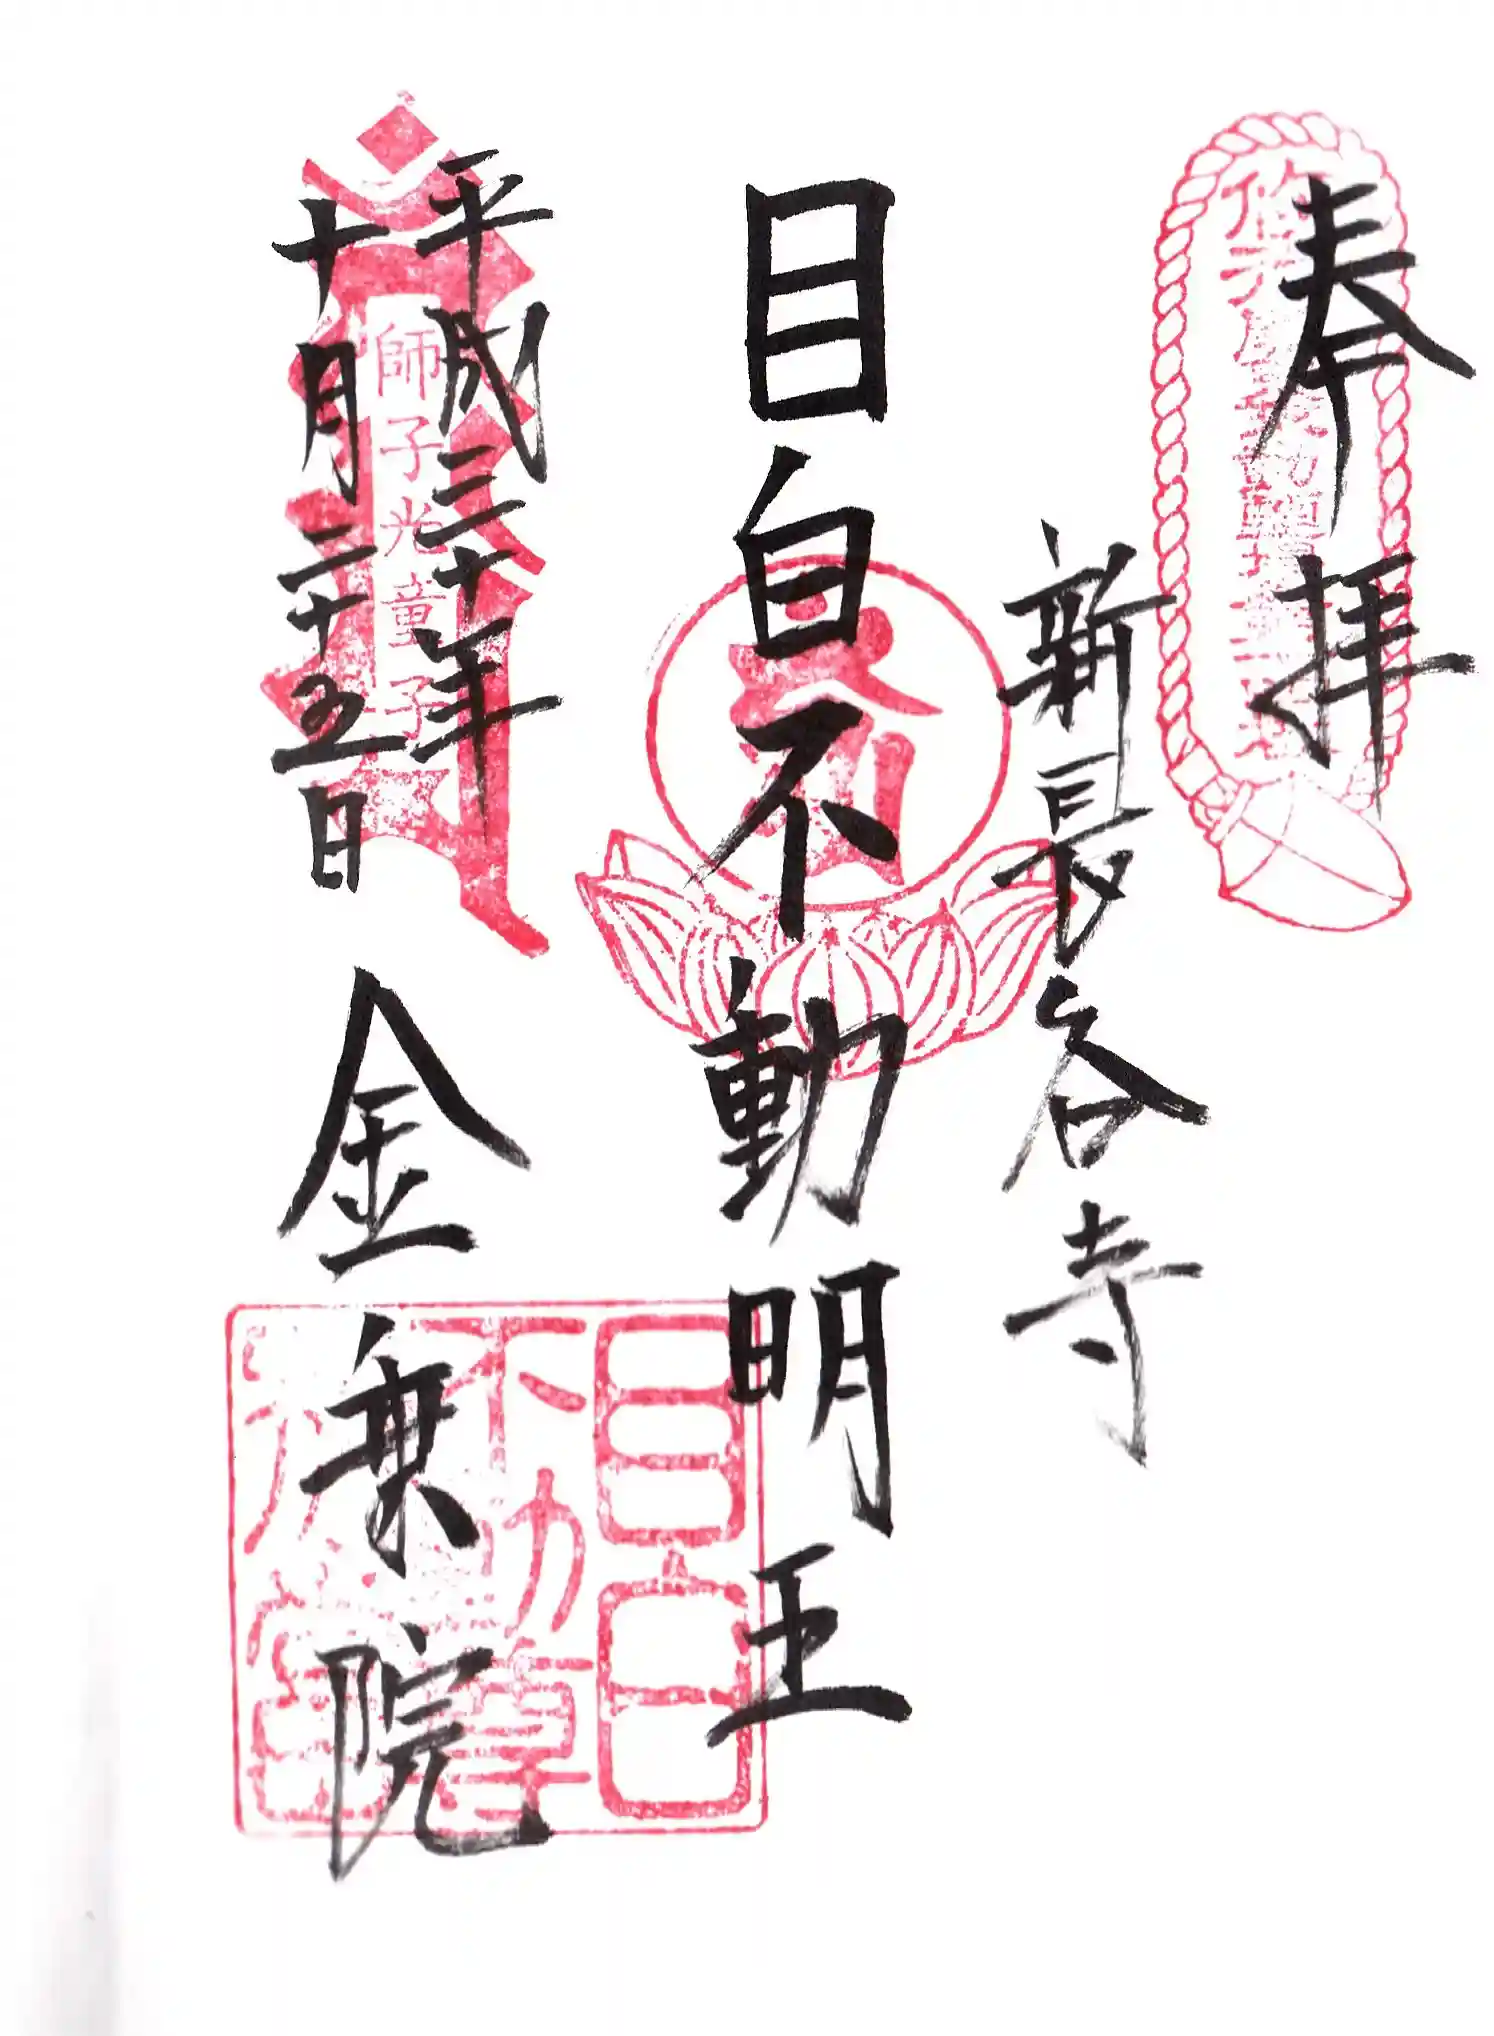 奉拝
新長谷寺
目白不動明王
平成三十年
十月二十五日
師子光童子
金乗院
目白
不動尊